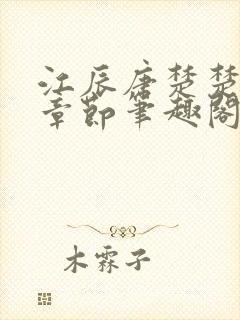 江辰唐楚楚
章节笔趣阁
木霖子